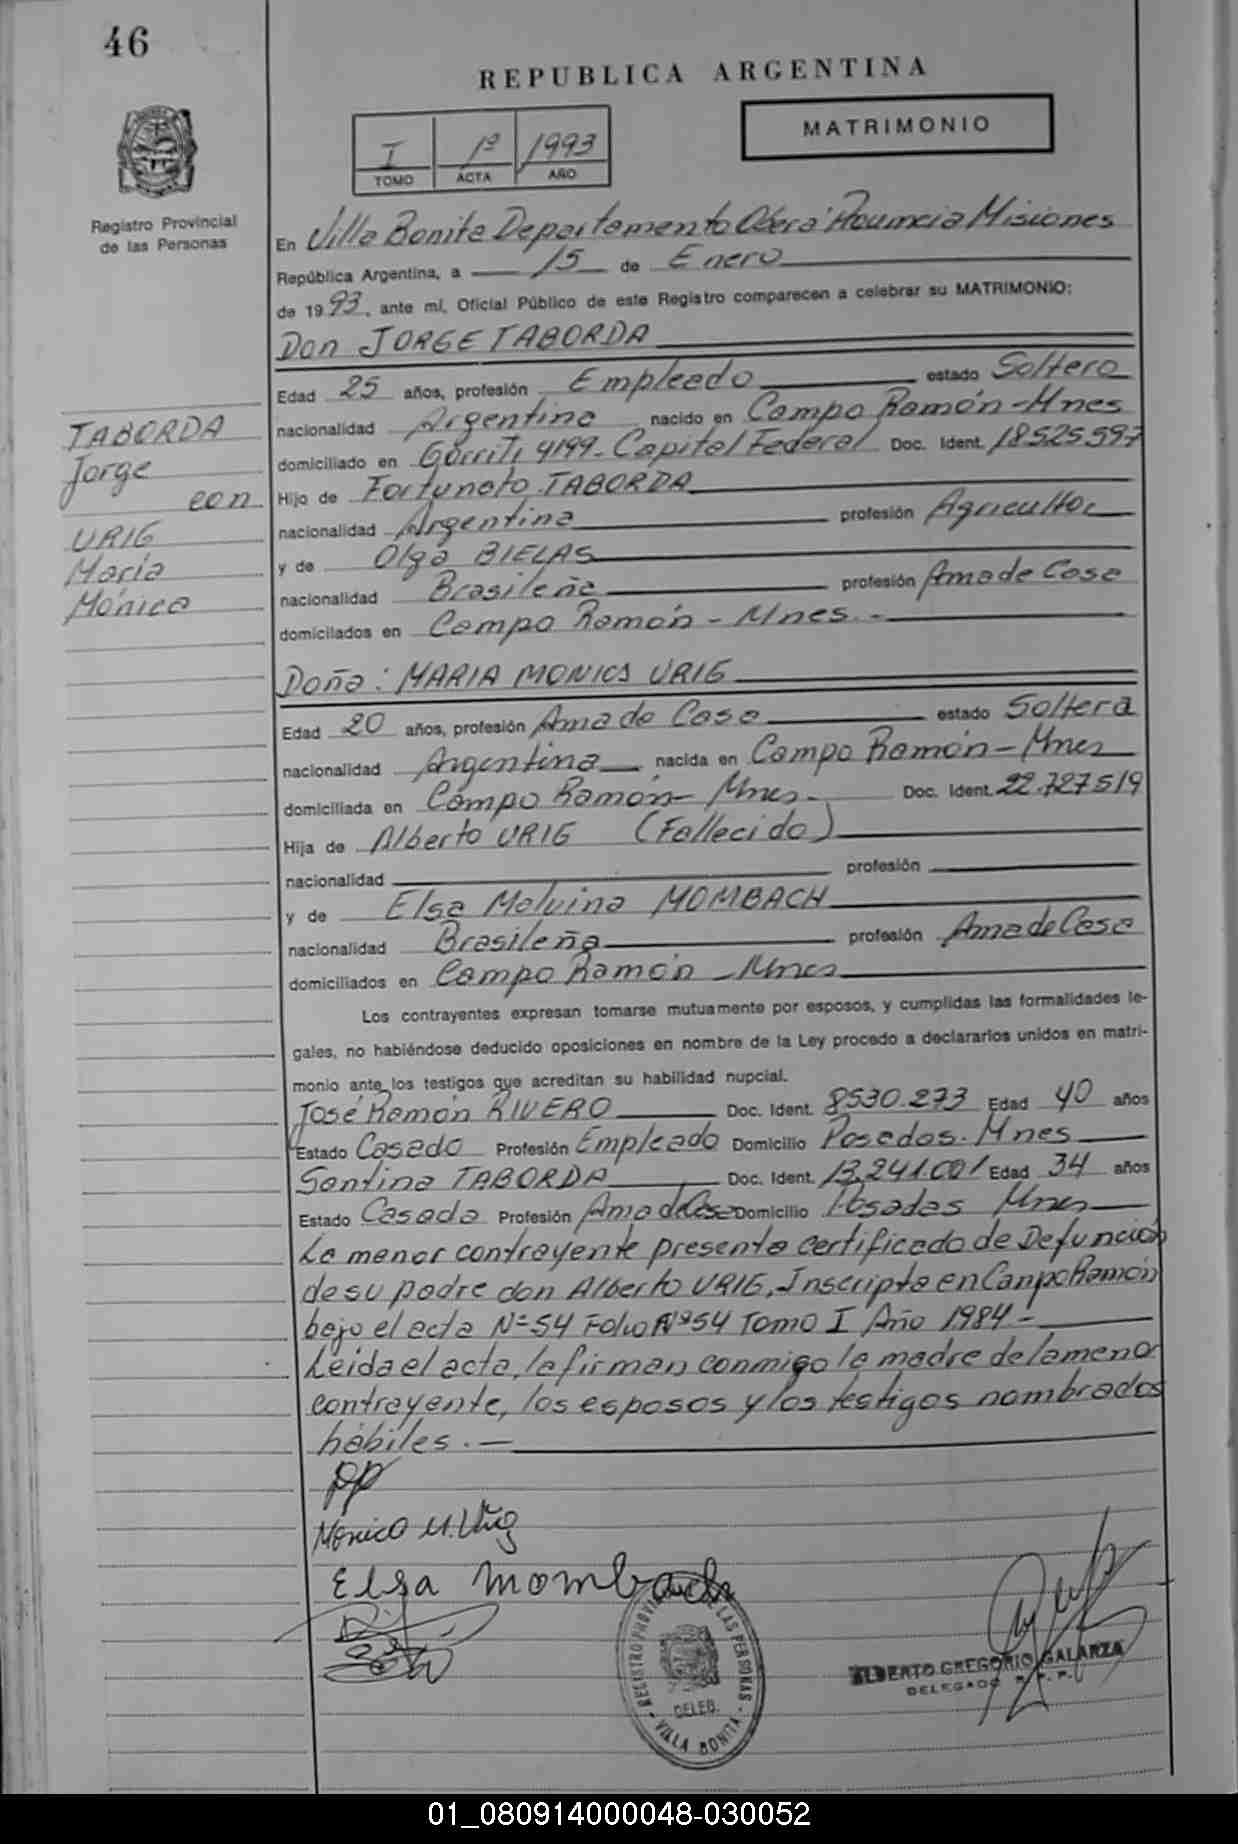 46
REPUBLICA ARGENTINA
MATRIMONIO
I 1º 1993
TOMO ACTA AÑO
Registro Provincial
de las Personas
En Villa Bonita Departamento Oberá Provincia Misiones
República Argentina, a 15 de Enero
de 1993, ante mí, Oficial Público de este Registro comparecen a celebrar su MATRIMONIO:
Don JORGE TABORDA
Edad 25 años, profesión Empleado estado Soltero
nacionalidad Argentina nacido en Campo Ramón-Mnes
domiciliado en Gorriti 4199- Capital Federal Doc. Ident. 18525597
Hijo de Fortunato TABORDA
nacionalidad Argentina profesión Agricultor
y de Olga BIELAS
nacionalidad Brasileña profesión Ama de Casa
domiciliados en Campo Ramón - Mnes.-
TABORDA
Jorge
con
URIG
María
Mónica
Doña: MARIA MONICA URIG
Edad 20 años, profesión Ama de Casa estado Soltera
nacionalidad Argentina nacida en Campo Ramón-Mnes
domiciliada en Campo Ramón- Mnes- Doc. Ident. 22.727519
Hija de Alberto URIG (Fallecido)
nacionalidad profesión
y de Elsa Malvina MOMBACH
nacionalidad Brasileña profesión Ama de Casa
domiciliados en Campo Ramón - Mnes
Los contrayentes expresan tomarse mutuamente por esposos, y cumplidas las formalidades le-
gales, no habiéndose deducido oposiciones en nombre de la Ley procedo a declararlos unidos en matri-
monio ante los testigos que acreditan su habilidad nupcial.
José Ramón RIVERO Doc. Ident. 8530.273 Edad 40 años
Estado Casado Profesión Empleado Domicilio Posadas. Mnes
Santina TABORDA Doc. Ident. 13.241.001 Edad 34 años
Estado Casada Profesión Ama de Casa Domicilio Posadas Mnes
La menor contrayente presenta certificado de Defunción
de su padre don Alberto URIG, Inscripta en Canpo Ramón
bajo el acta Nº 54 Folio Nº 54 Tomo I Año 1984-
Leída el acta, la firman conmigo la madre de la menor
contrayente, los esposos y los testigos nombrados
hábiles.-
Mónica M. Urig
Elsa Mombach
REGISTRO PROVINCIAL DE LAS PERSONAS
DELEG.
- VILLA BONITA -
ALBERTO GREGORIO GALARZA
DELEGADO R. P. P.
01_080914000048-030052